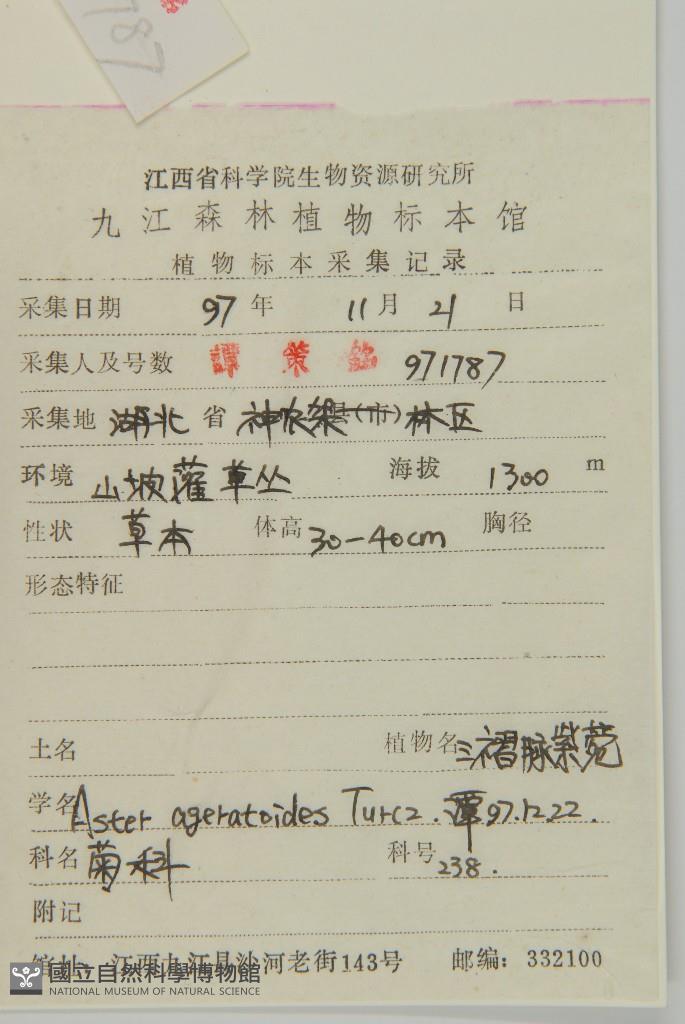 787
江西省科学院生物资源研究所
九江森林植物标本馆
植物标本采集记录
采集日期 97年 11月 21 日
采集人及号数 譚 策 銘 971787
采集地 湖北 省 神农架县(市)林区
环境 山坡灌草丛 海拔 1300 m
性状 草本 体高 30-40cm 胸径
形态特征
土名 植物名 三褶脉紫菀
学名 Aster ageratoides Turcz. 谭 97.12.22.
科名 菊科 科号 238.
附记
馆址: 江西九江县沙河老街143号 邮编: 332100
國立自然科學博物館
NATIONAL MUSEUM OF NATURAL SCIENCE